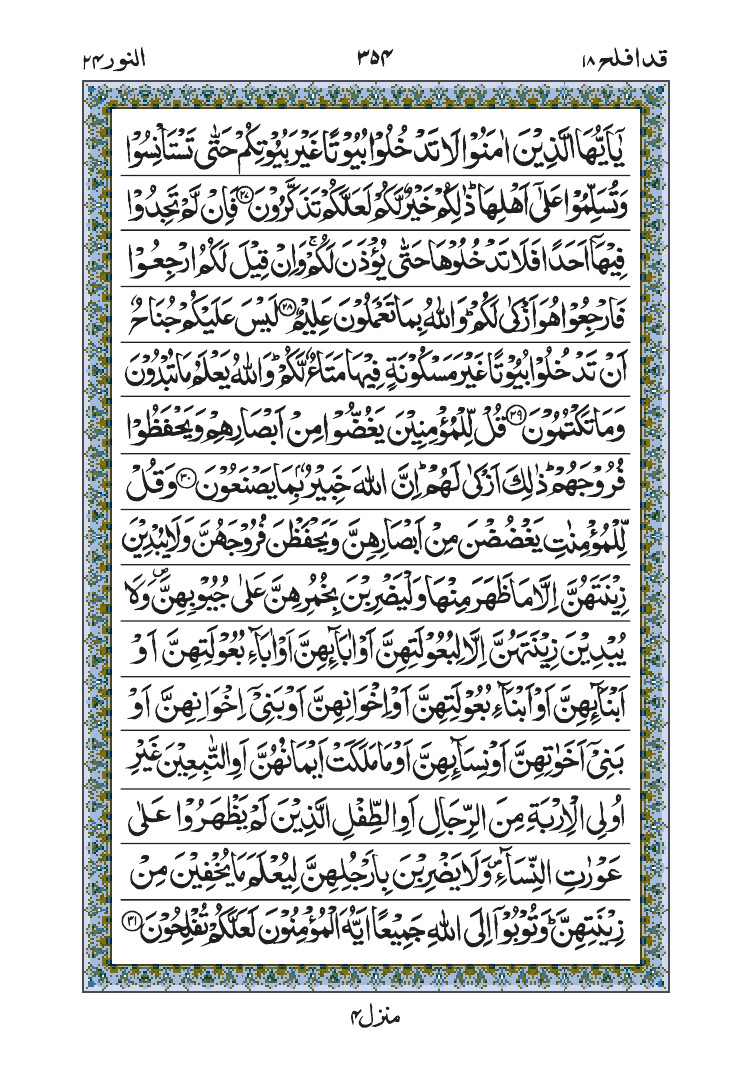 قد افلح ۱۸
۳۵۴
النور ۲۴
يٰۤاَيُّهَا الَّذِيْنَ اٰمَنُوْا لَا تَدْخُلُوْا بُيُوْتًا غَيْرَ بُيُوْتِكُمْ حَتّٰى تَسْتَاْنِسُوْا
وَتُسَلِّمُوْا عَلٰۤى اَهْلِهَا ؕ ذٰلِكُمْ خَيْرٌ لَّكُمْ لَعَلَّكُمْ تَذَكَّرُوْنَ ﴿۲۷﴾ فَاِنْ لَّمْ تَجِدُوْا
فِيْهَاۤ اَحَدًا فَلَا تَدْخُلُوْهَا حَتّٰى يُؤْذَنَ لَكُمْ ۚ وَاِنْ قِيْلَ لَكُمُ ارْجِعُوْا
فَارْجِعُوْا هُوَ اَزْكٰى لَكُمْ ؕ وَاللّٰهُ بِمَا تَعْمَلُوْنَ عَلِيْمٌ ﴿۲۸﴾ لَيْسَ عَلَيْكُمْ جُنَاحٌ
اَنْ تَدْخُلُوْا بُيُوْتًا غَيْرَ مَسْكُوْنَةٍ فِيْهَا مَتَاعٌ لَّكُمْ ؕ وَاللّٰهُ يَعْلَمُ مَا تُبْدُوْنَ
وَمَا تَكْتُمُوْنَ ﴿۲۹﴾ قُلْ لِّلْمُؤْمِنِيْنَ يَغُضُّوْا مِنْ اَبْصَارِهِمْ وَيَحْفَظُوْا
فُرُوْجَهُمْ ؕ ذٰلِكَ اَزْكٰى لَهُمْ ؕ اِنَّ اللّٰهَ خَبِيْرٌۢ بِمَا يَصْنَعُوْنَ ﴿۳۰﴾ وَقُلْ
لِّلْمُؤْمِنٰتِ يَغْضُضْنَ مِنْ اَبْصَارِهِنَّ وَيَحْفَظْنَ فُرُوْجَهُنَّ وَلَا يُبْدِيْنَ
زِيْنَتَهُنَّ اِلَّا مَا ظَهَرَ مِنْهَا وَلْيَضْرِبْنَ بِخُمُرِهِنَّ عَلٰى جُيُوْبِهِنَّ ۪ وَلَا
يُبْدِيْنَ زِيْنَتَهُنَّ اِلَّا لِبُعُوْلَتِهِنَّ اَوْ اٰبَآئِهِنَّ اَوْ اٰبَآءِ بُعُوْلَتِهِنَّ اَوْ
اَبْنَآئِهِنَّ اَوْ اَبْنَآءِ بُعُوْلَتِهِنَّ اَوْ اِخْوَانِهِنَّ اَوْ بَنِىْۤ اِخْوَانِهِنَّ اَوْ
بَنِىْۤ اَخَوٰتِهِنَّ اَوْ نِسَآئِهِنَّ اَوْ مَا مَلَكَتْ اَيْمَانُهُنَّ اَوِ التّٰبِعِيْنَ غَيْرِ
اُولِى الْاِرْبَةِ مِنَ الرِّجَالِ اَوِ الطِّفْلِ الَّذِيْنَ لَمْ يَظْهَرُوْا عَلٰى
عَوْرٰتِ النِّسَآءِ ۪ وَلَا يَضْرِبْنَ بِاَرْجُلِهِنَّ لِيُعْلَمَ مَا يُخْفِيْنَ مِنْ
زِيْنَتِهِنَّ ؕ وَتُوْبُوْۤا اِلَى اللّٰهِ جَمِيْعًا اَيُّهَ الْمُؤْمِنُوْنَ لَعَلَّكُمْ تُفْلِحُوْنَ ﴿۳۱﴾
منزل ۴